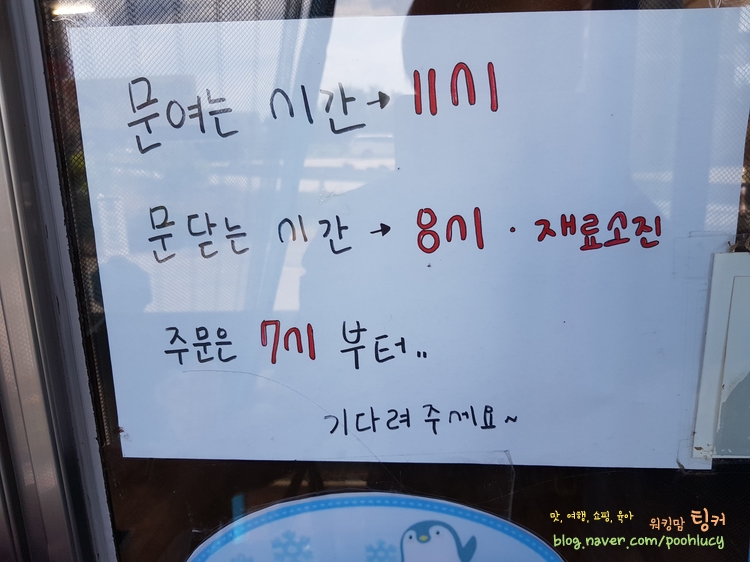 문여는 시간→ 11시
문닫는 시간 → 8시 · 재료소진
주문은 7시 부터..
기다려주세요~
맛, 여행, 쇼핑, 육아 워킹맘 팅커
blog.naver.com/poohlucy